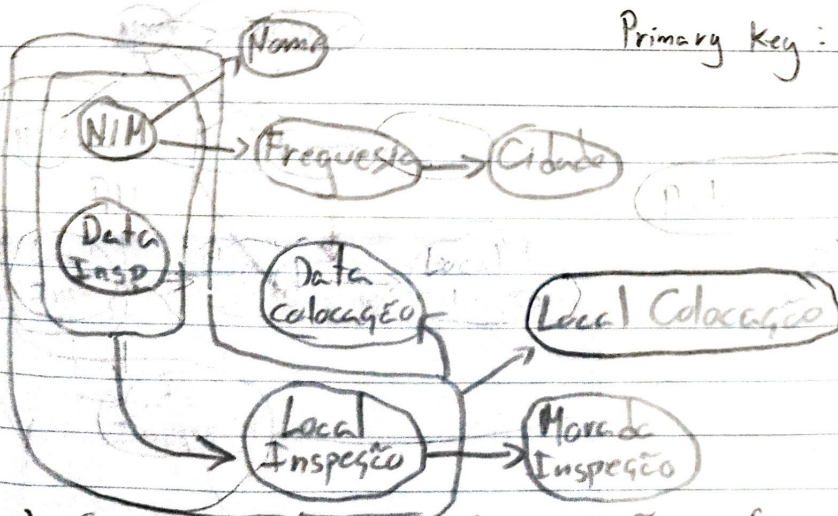 Nome
Primary Key:
NIM
Freguesia
Cidade
Data
Insp
Data
Colocação
Local Colocação
Local
Inspeção
Morada
Inspeção